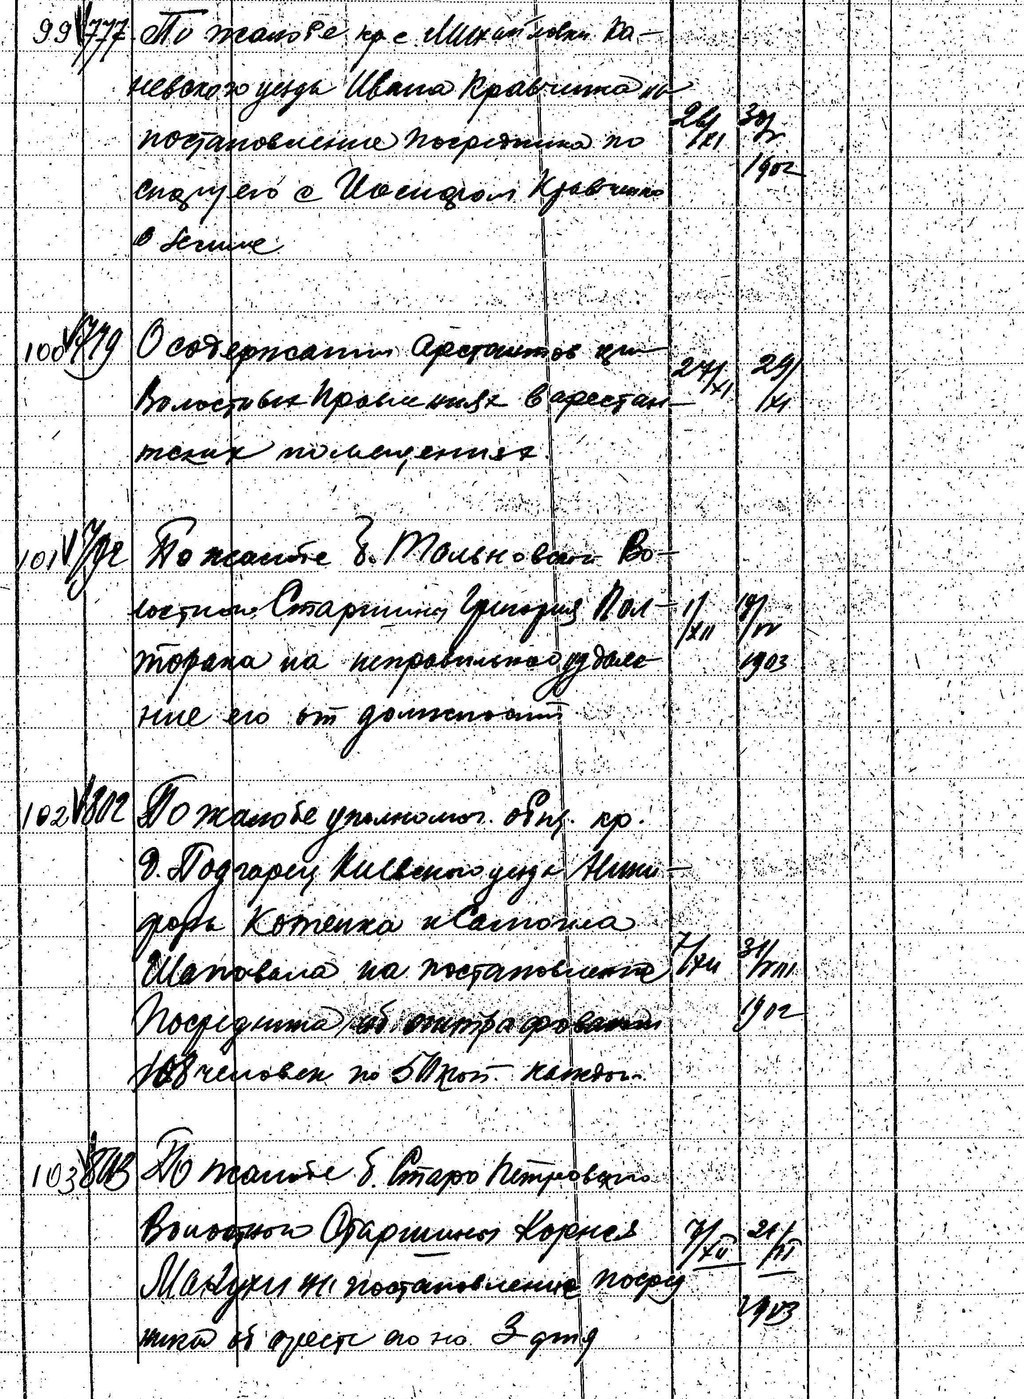 99 777 По жалобе кр. с. Михайловки Ка-
невского уезда Ивана Кравченка на
постановление Посредника по 26/XI 30/V
спору его с Иосифом Кравченко 1902
о земле.
100 779 О содержании арестантов при 27/XI 29/XI
Волостных Правлениях в арестан-
тских помещениях.
101 792 По жалобе б. Тальновского Во-
лостного Старшины Григория Пол- 1/XII
торака на неправильное удале- 1903
ние его от должности
102 802 По жалобе уполномоч. общ. кр.
д. Подгорец Киевского уезда Ники-
фора Котенка и Самоила
Шаповала на постановление 7/XII 31/VIII
Посредника об оштрафовании 1902
108 человек по 50 коп. каждого.
103 803 По жалобе б. Старо Петровского
Волостного Старшины Корнея 7/XII 21/VI
Макухи на постановление посред 1903
ника об аресте его на 3 дня